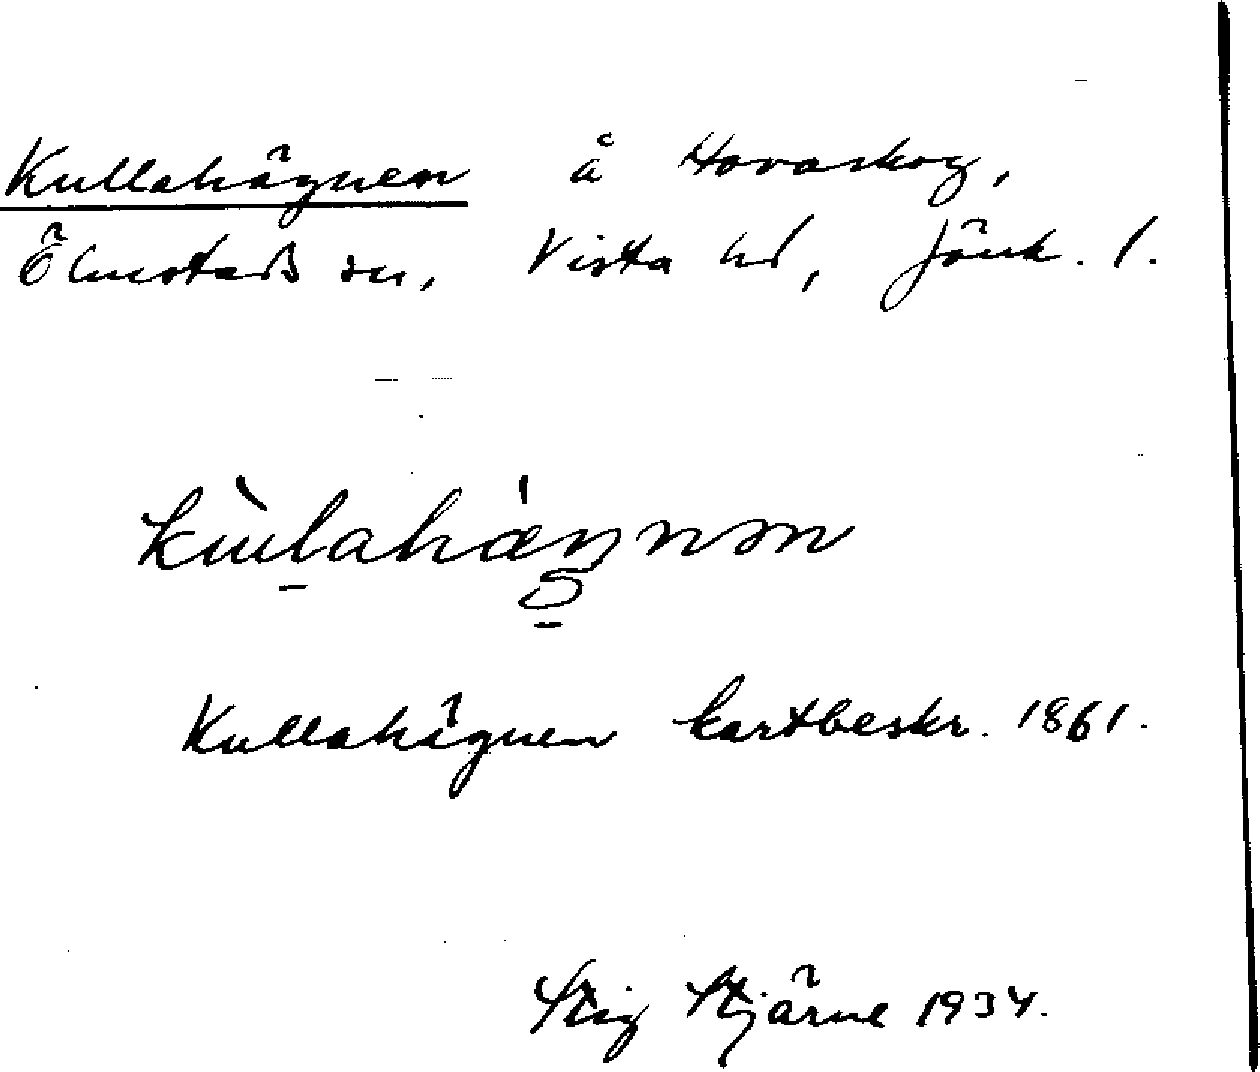 Kullahägnen å Hovaskog,
Ölmstads sn, Vista hd, Jönk. l.
kùlahágnən
Kullahägnen kartbeskr. 1861.
Stig Stjärne 1934.